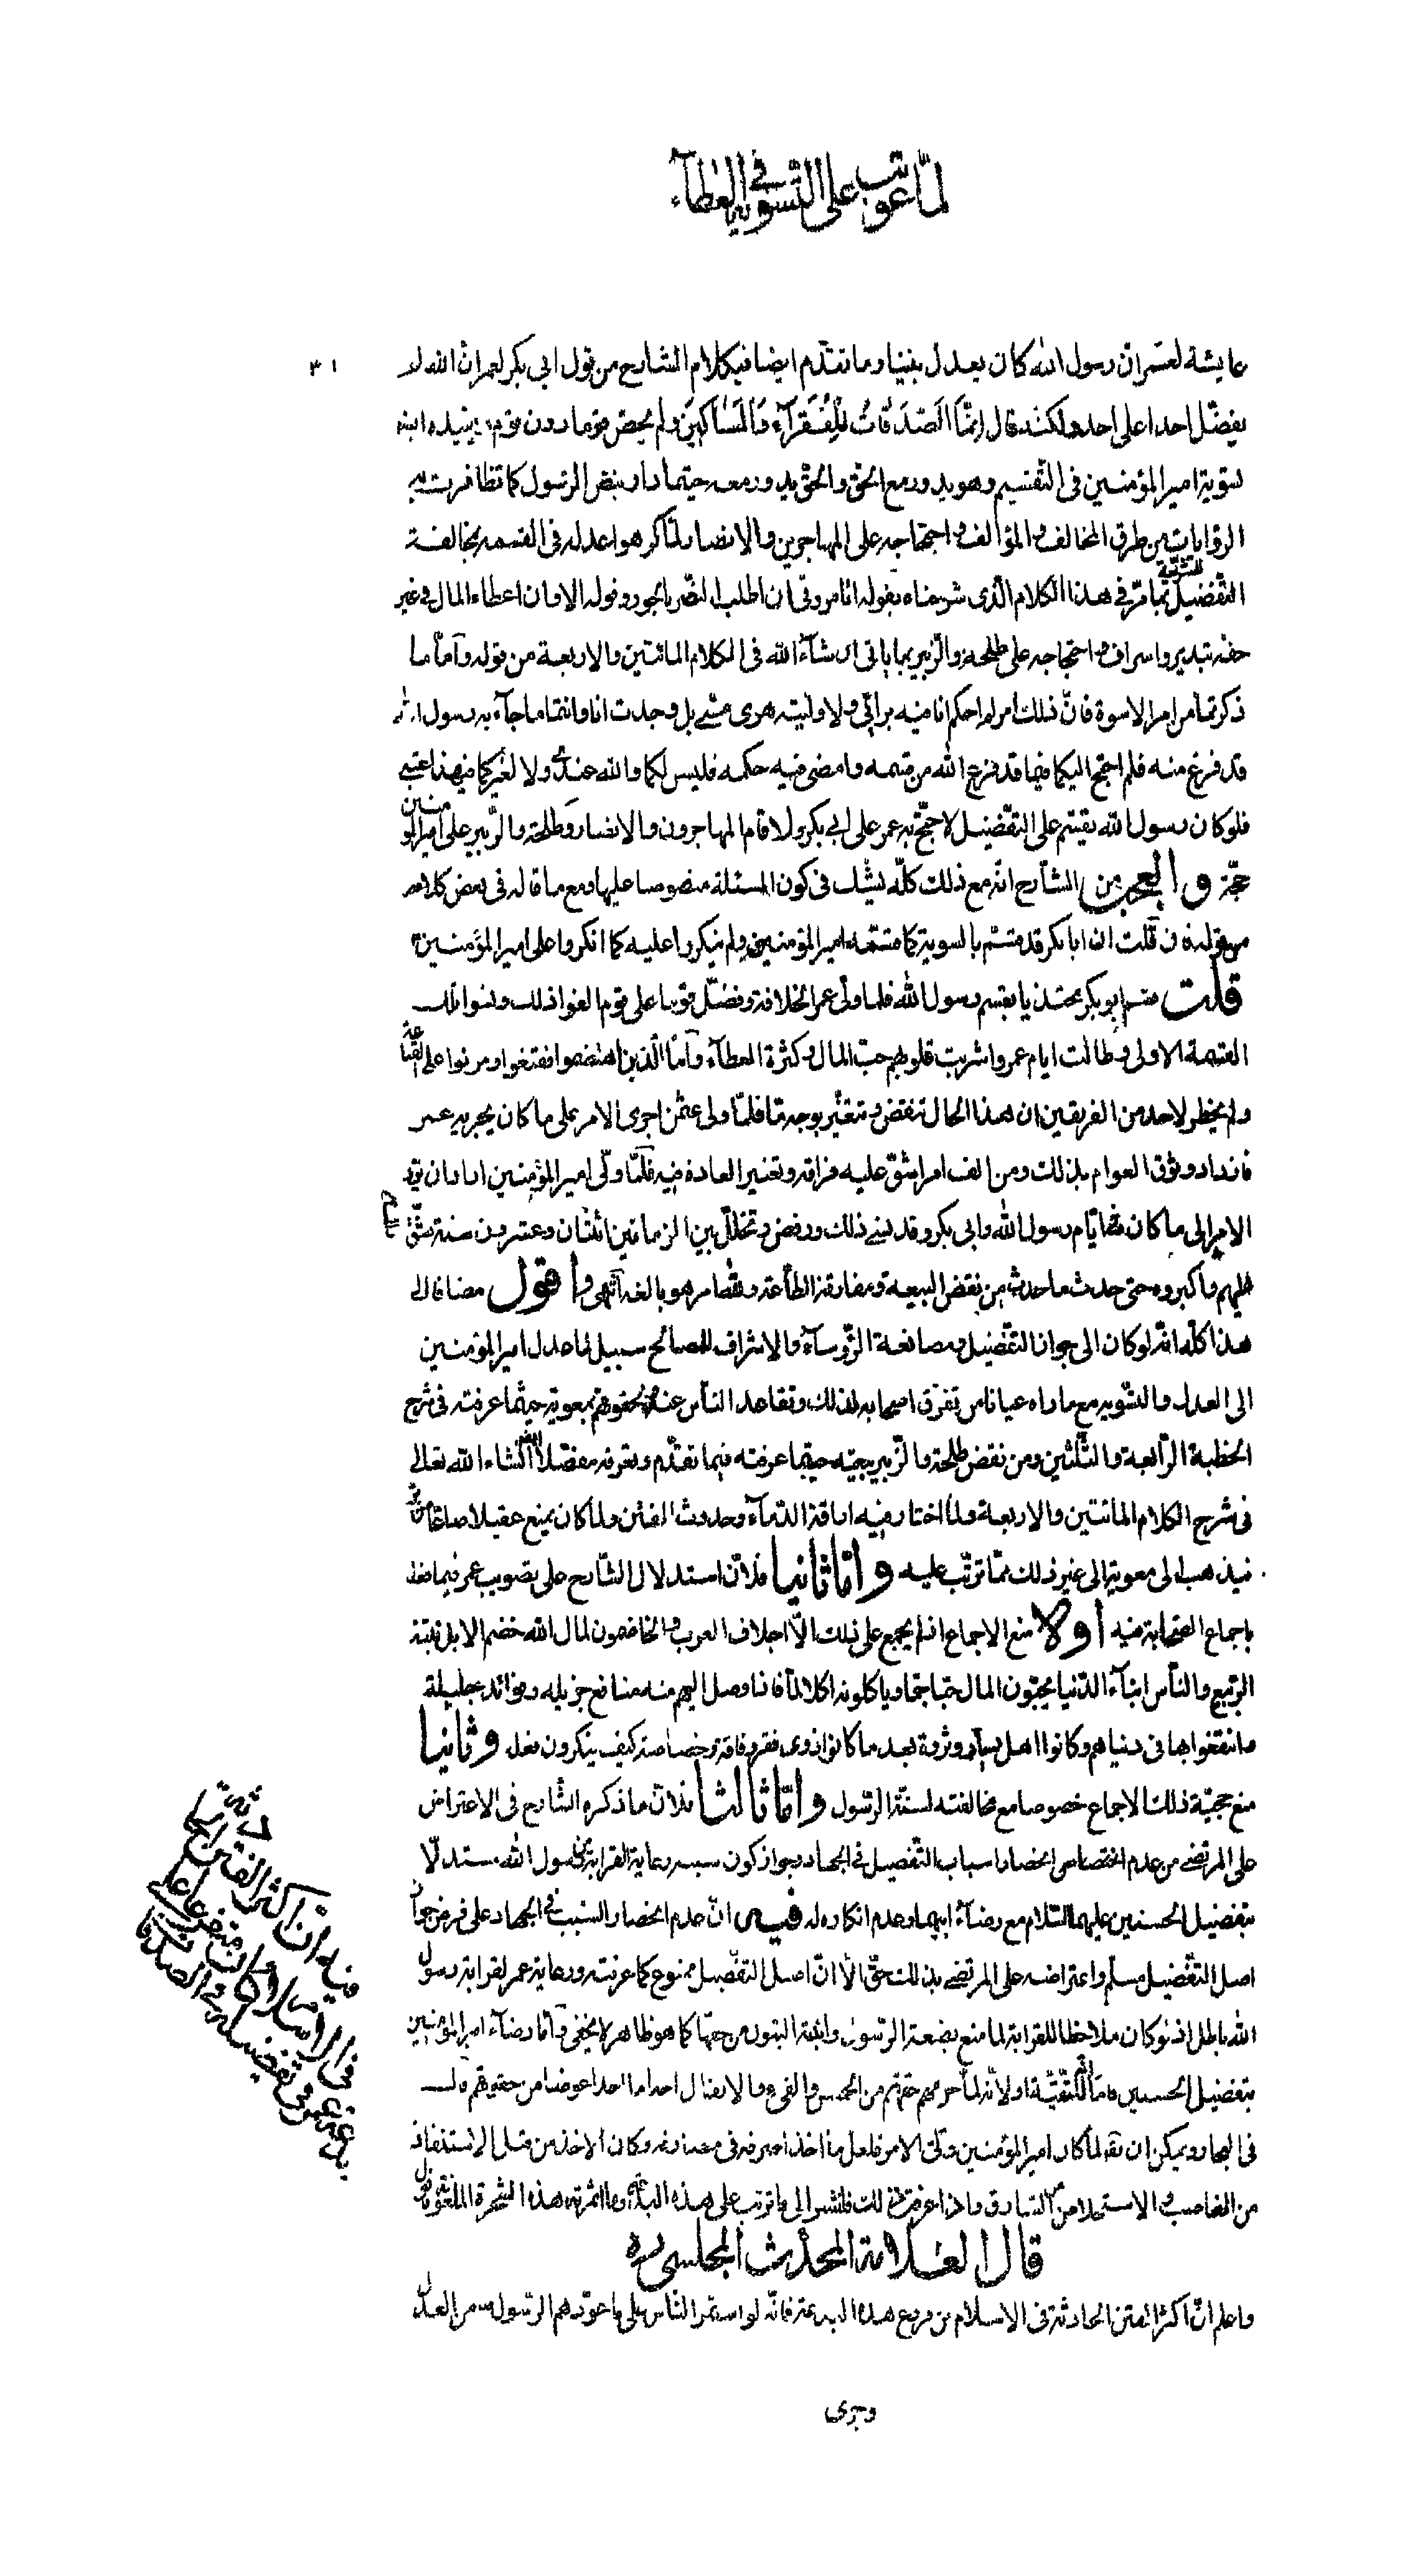 لمّا عوتب على التّسوية في العطآء
٣١
عايشة لعمر انّ رسول الله كان يعدل بيننا وما تقدّم ايضا في كلام الشارح من قول ابي بكر لعمر انّ الله لم
يفضّل احدا على احد ولكنه قال إنّما الصّدقات للفقرآء والمساكين ولم يخصّ قوما دون قوم، ايضا
تسوية امير المؤمنين في التّقسيم وهو يدور مع الحقّ والحقّ يدور معه حيثما دار بنصّ الرّسول كما تظافرت به
الرّوايات من طرق المخالف والمؤالف واحتجاجه على المهاجرين والانصار لمّا كرهوا عدله في القسمة بمخالفة
التّفضيل للشّريعة بما مرّ في هذا الكلام الّذي شرحناه بقوله اتامروني ان اطلب النّصر بالجور وقوله الا وان اعطاء المال في غير
حقّه تبذير واسراف واحتجاجه على طلحة والزّبير بما ياتي ان شآء الله في الكلام المأتين والاربعة من قوله وأمّا ما
ذكرتما من امر الاسوة فانّ ذلك امر لم احكم انا فيه برائي ولا وليته هوى منّي بل وجدت انا وانتما ما جآء به رسول الله
قد فرغ منه فلم احتج اليكما فيما قد فرغ الله من قسمه وامضى فيه حكمه فليس لكما والله عندي ولا لغيركما في هذا عتبى
فلو كان رسول الله يقسّم على التّفضيل لاحتجّ به عمر على ابي بكر ولاقام المهاجرون والانصار وطلحة والزّبير على امير المؤمنين
حجّة والعجب من الشّارح انّه مع ذلك كلّه يشكّ في كون المسئلة منصوصا عليها ومع ما قاله في بعض كلامه
من قوله فان قلت انّ ابا بكر قد قسّم بالسوية كما قسّمه امير المؤمنين ولم ينكروا عليه كما انكروا على امير المؤمنين
قلت قسم ابو بكر محتذيا بقسم رسول الله فلمّا ولّى عمر الخلافة وفضّل قوما على قوم الفوا ذلك ونسوا تلك
القسمة الاولى وطالت ايام عمر واشربت قلوبهم حبّ المال وكثرة العطآء وأمّا الّذين اهتضموا فقنعوا ومرنوا على القناعة
ولم يخطر لاحد من الفريقين ان هذا الحال تنقض وتتغيّر بوجه ما فلمّا ولى عثمن اجرى الامر على ما كان يجريه عمر
فازداد وثوق العوام بذلك ومن الف امرا شقّ عليه فراقه وتغيير العادة فيه فلمّا ولّى امير المؤمنين اراد ان يردّ
الامر الى ما كان في ايّام رسول الله وابي بكر وقد نسى ذلك ورفض وتخلّل بين الزمانين اثنتان وعشرون سنة فشقّ ذلك
عليهم واكبروه حتى حدث ما حدث من نقض البيعة ومفارقة الطّاعة ولله امر هو بالغه انتهى وأقول مضافا الى
هذا كلّه انّه لو كان الى جواز التّفضيل ومصانعة الرّؤسآء والاشراف للمصالح سبيل لما عدل امير المؤمنين
الى العدل والتّسوية مع ما راه عيانا من تفرّق اصحابه لذلك وتقاعد النّاس عنه ولحوقهم بمعوية حيثما عرفته في شرح
الخطبة الرّابعة والثّلثين ومن نقض طلحة والزّبير بيعته حيثما عرفته فيما تقدّم وتعرفه مفصّلا ايضا انشاء الله تعالى
في شرح الكلام المأتين والاربعة ولما اختار فيه اراقة الدّمآء وحدوث الفتن ولما كان يمنع عقيلا صاعا من برّ
فيذهب الى معوية الى غير ذلك ممّا ترتّب عليه وأمّا ثانيا فلانّ استدلال الشّارح على تصويب عمر فيما فعل
باجماع الصّحابة فيه أولا منع الاجماع اذ لم يجمع على ذلك الاّ اجلاف العرب والخاضمون لمال الله خضم الابل نبتة
الرّبيع والنّاس ابنآء الدّنيا يحبّون المال حبّا جمّا وياكلونه اكلا لمّا فاذا وصل اليهم منه منافع جزيلة وفوائد جليلة
فانتفعوا بها في دنياهم وكانوا اهل يسار وثروة بعد ما كانوا ذوى فقر وفاقة وخصاصة كيف ينكرون فعله وثانيا
منع حجيّة ذلك الاجماع خصوصا مع مخالفته لسنّة الرّسول وأمّا ثالثا فلانّ ما ذكره الشّارح في الاعتراض
على المرتضى من عدم اختصاص انحصار اسباب التّفضيل في الجهاد وجواز كون سببه رعاية القرابة من رسول الله مستدلّا
بتفضيل الحسنين عليهما السّلام مع رضآء ابيهما وعدم انكاره له ففيه انّ عدم انحصار السّبب في الجهاد على فرض جواز
اصل التّفضيل مسلّم واعتراضه على المرتضى بذلك حقّ الاّ انّ اصل التّفضيل ممنوع كما عرفته ورعاية عمر لقرابة رسول
الله باطل اذ لو كان ملاحظا للقرابة لما منع بضعة الرّسول وابنة البتول من حقّها كما هو ظاهر لا يخفى وأمّا رضآء امير المؤمنين
بتفضيل الحسنين فامّا للتّقيّة او لانّه لمّا حرمهم حقّهم من الخمس والفيء والانفال اخذا ما اخذا عوضا من حقوقهم قال
في البحار ويمكن ان يقال لمّا كان امير المؤمنين ولّى الامر فلعلّ ما اخذا صرفه في مصارفه وكان الاخذ من قبيل الاستنقاذ
من الغاصب والاستخلاص من السّارق واذا عرفت ذلك فلنشر الى ما ترتّب على هذه البدعة وما اثمرته هذه الشجرة الملعونة فنقول
قال العلّامة المحدّث المجلسي ره
واعلم انّ اكثر الفتن الحادثة في الاسلام من فروع هذه البدعة فانّه لو استمر النّاس على ما عوّدهم الرّسول من العدل
وجرى
فيه انّ اكثر الفتن الحادثة
في الاسلام كانت متفرعة على
بدعة عمر في تفضيله في الصدقات